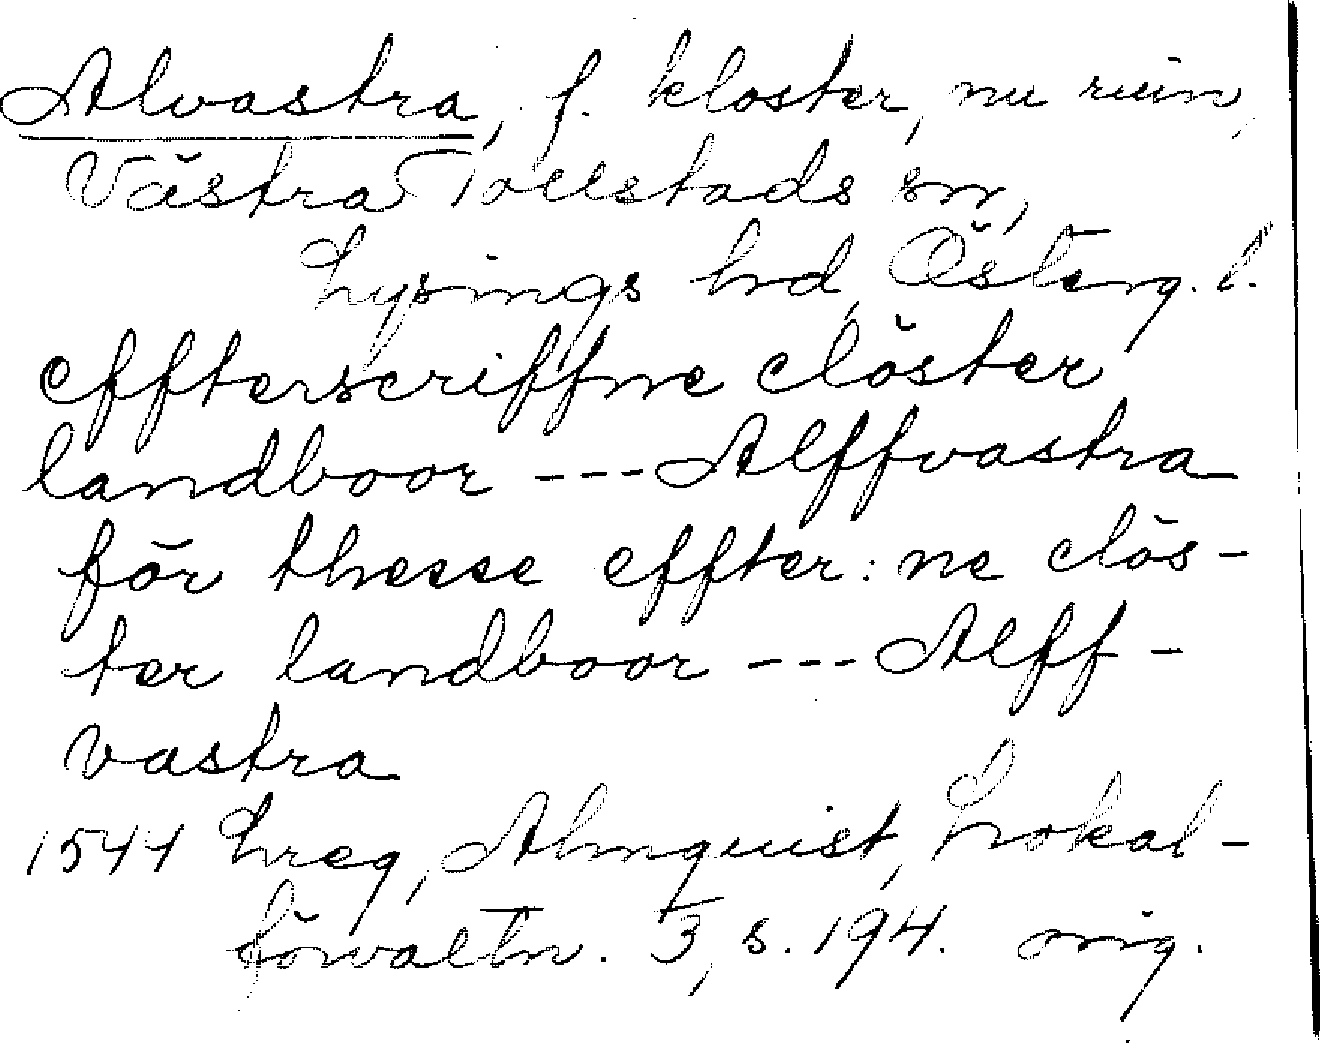 Alvastra, f. kloster, nu ruin,
Västra Tollstads sn,
Lysings hd, Österg. l.
effterscriffne clöster
landboor --- Alffvastra
för thesse effter: ne clös-
ter landboor --- Alff-
vastra
1544 Lreg, Almquist, Lokal-
förvaltn. 3, s. 194. orig.